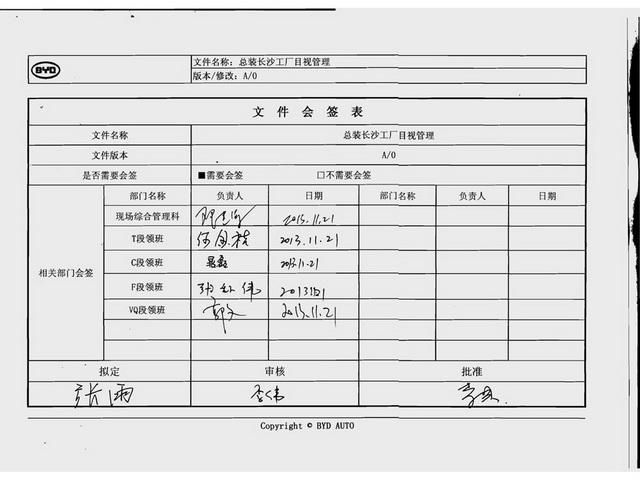 BYD
文件名称：总装长沙工厂目视管理
版本/修改：A/0
文 件 会 签 表
文件名称 总装长沙工厂目视管理
文件版本 A/0
是否需要会签 ■需要会签 □不需要会签
相关部门会签
部门名称 负责人 日期 部门名称 负责人 日期
现场综合管理科 2013.11.21
T段领班 2013.11.21
C段领班 2013.11.21
F段领班
VQ段领班 2013.11.21
拟定 审核 批准
张雨
Copyright © BYD AUTO